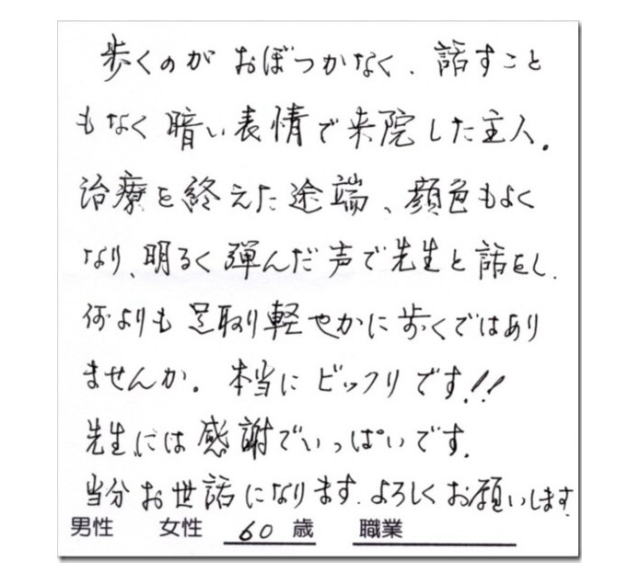 歩くのが おぼつかなく、話すこと
もなく 暗い表情で来院した主人。
治療を終えた途端、顔色もよく
なり、明るく弾んだ声で先生と話をし、
何よりも足取り軽やかに歩くではあり
ませんか。本当にビックリです!!
先生には感謝でいっぱいです。
当分お世話になります。よろしくお願いします
男性 女性 60 歳 職業